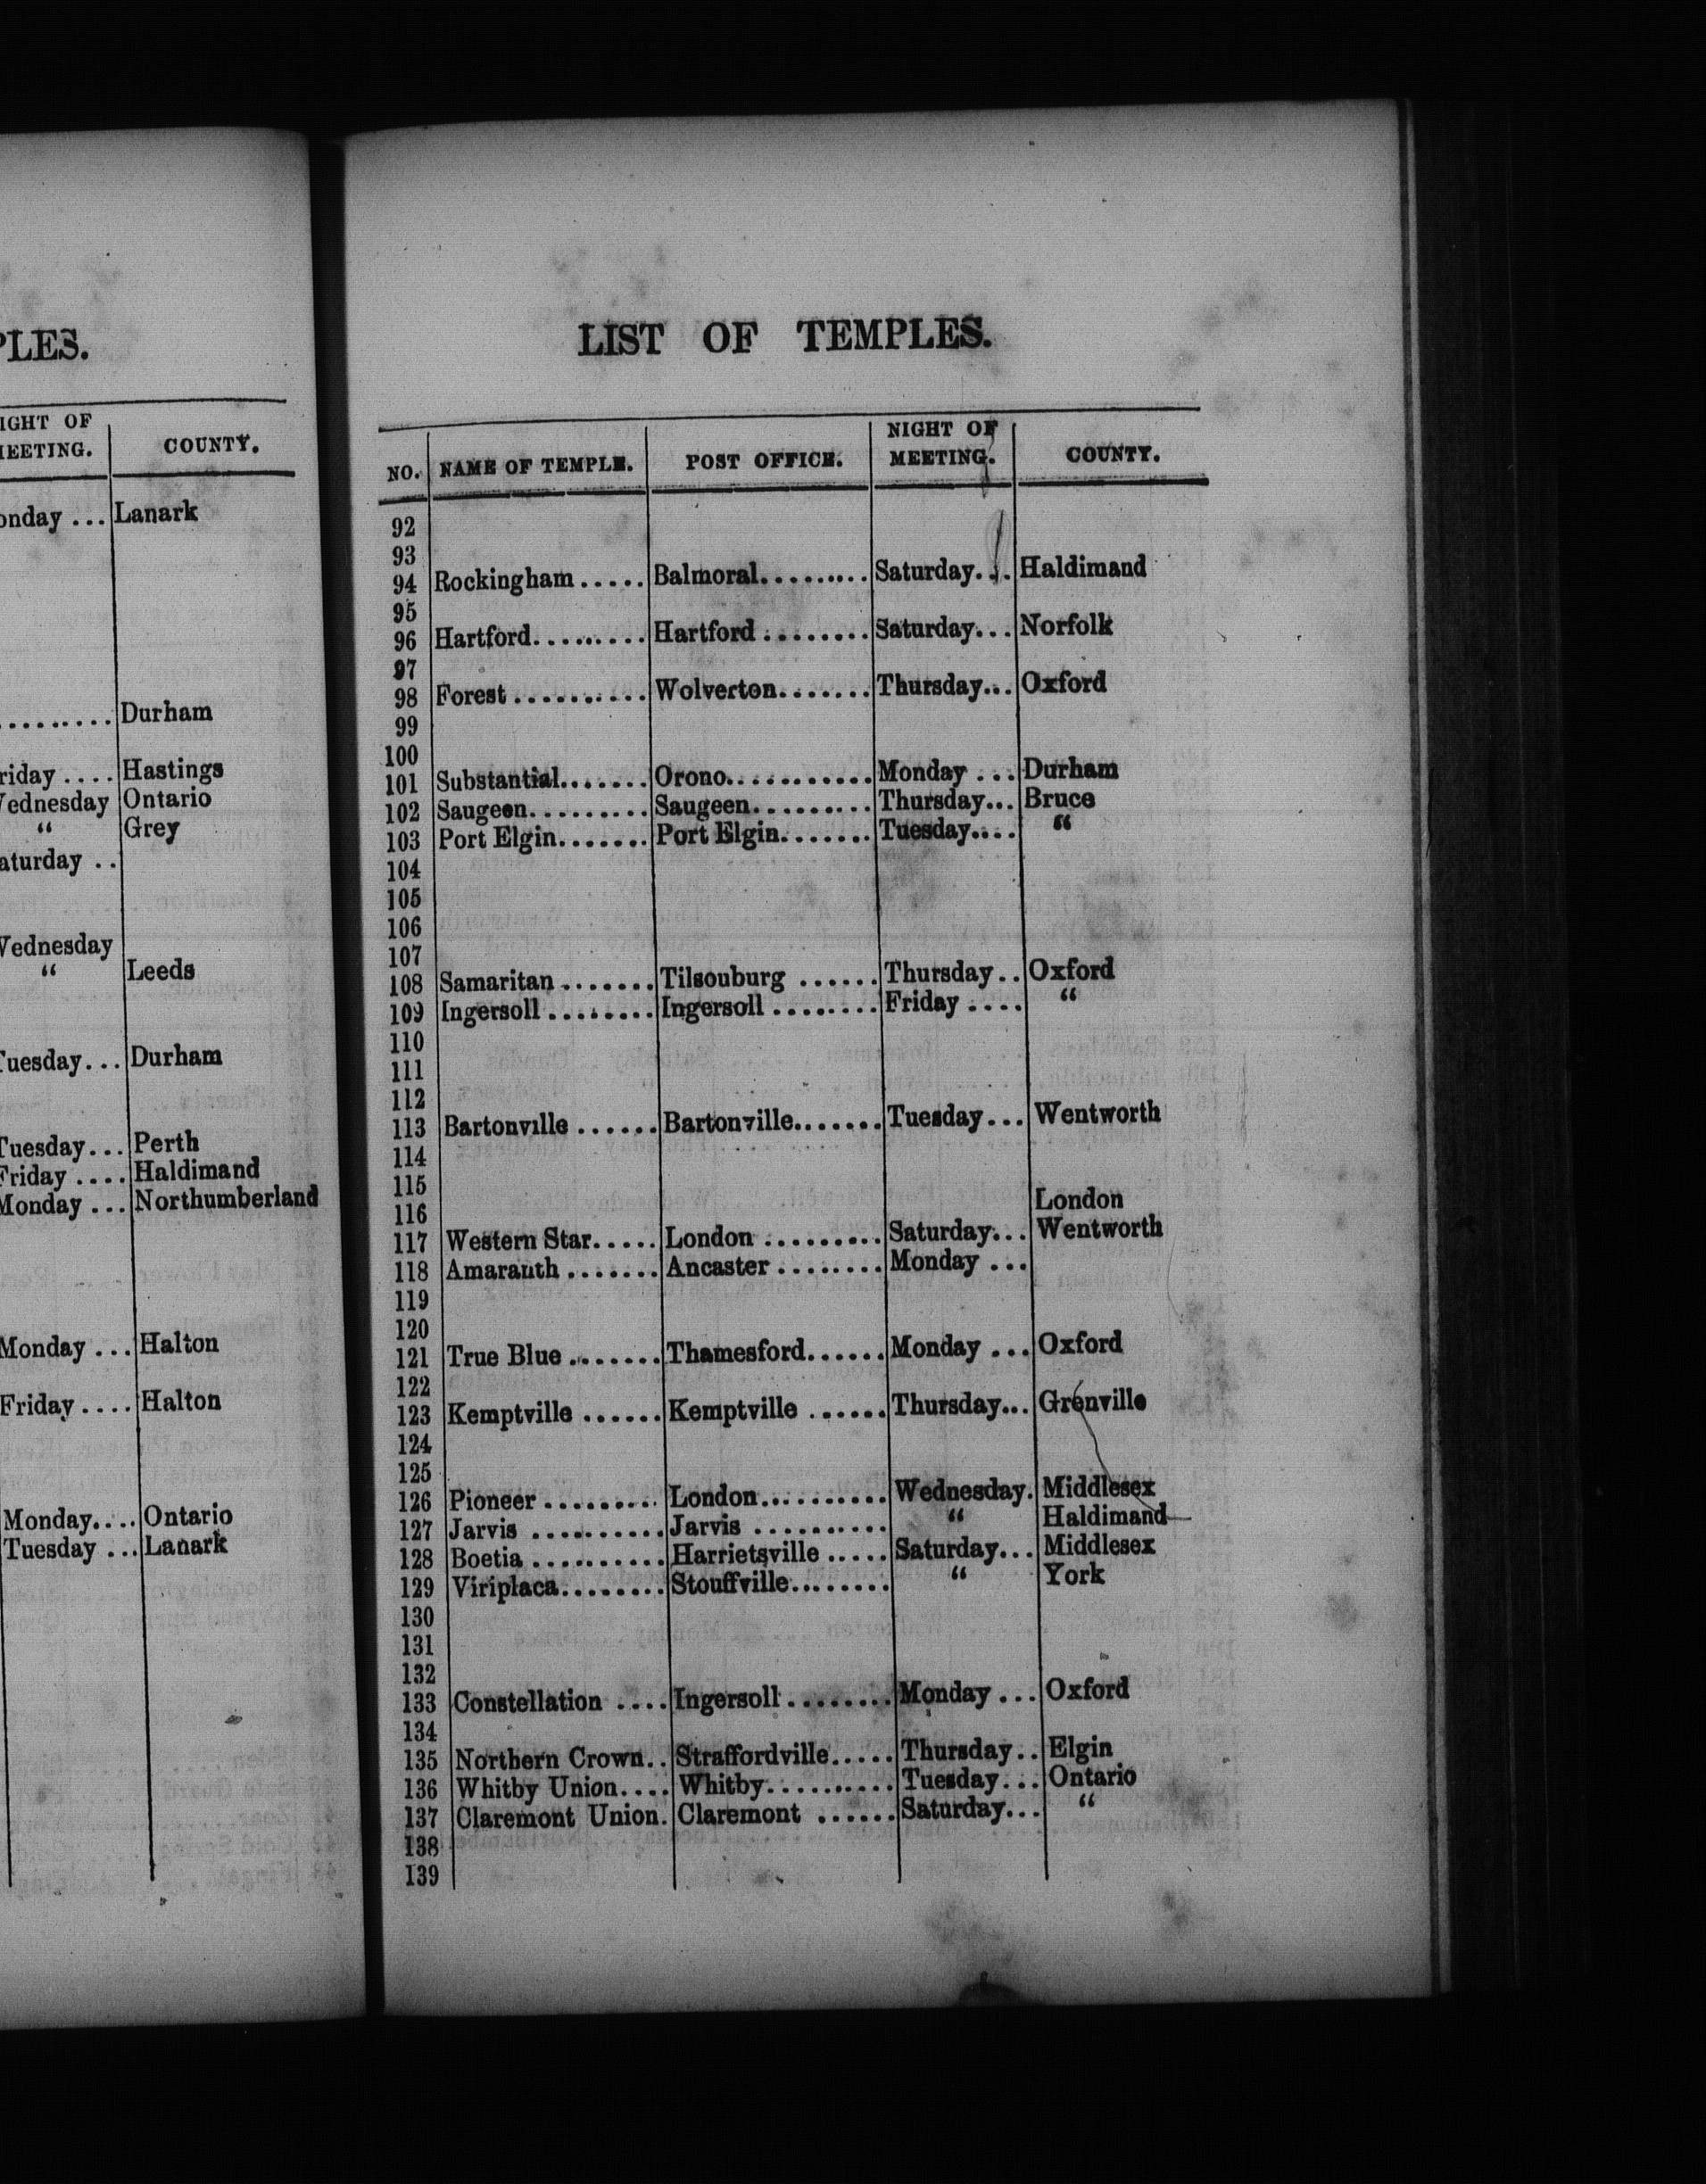 PLES.
IGHT OF
MEETING. COUNTY.
onday ... Lanark
......... Durham
riday .... Hastings
Vednesday Ontario
“ Grey
aturday ..
Vednesday
“ Leeds
Tuesday... Durham
Tuesday... Perth
Friday .... Haldimand
Monday ... Northumberland
Monday ... Halton
Friday .... Halton
Monday.... Ontario
Tuesday ... Lanark
LIST OF TEMPLES.
NIGHT OF
NO. NAME OF TEMPLE. POST OFFICE. MEETING. COUNTY.
92
93
94 Rockingham ..... Balmoral......... Saturday... Haldimand
95
96 Hartford......... Hartford ........ Saturday... Norfolk
97
98 Forest .......... Wolverton....... Thursday... Oxford
99
100
101 Substantial....... Orono............ Monday ... Durham
102 Saugeen.......... Saugeen.......... Thursday... Bruce
103 Port Elgin....... Port Elgin....... Tuesday.... “
104
105
106
107
108 Samaritan ....... Tilsouburg ...... Thursday.. Oxford
109 Ingersoll ........ Ingersoll ........ Friday .... “
110
111
112
113 Bartonville ...... Bartonville....... Tuesday... Wentworth
114
115
116 London
117 Western Star..... London ......... Saturday... Wentworth
118 Amaranth ....... Ancaster ........ Monday ...
119
120
121 True Blue ....... Thamesford...... Monday ... Oxford
122
123 Kemptville ...... Kemptville ...... Thursday... Grenville
124
125
126 Pioneer ......... London........... Wednesday. Middlesex
127 Jarvis .......... Jarvis .......... “ Haldimand
128 Boetia .......... Harrietsville ..... Saturday... Middlesex
129 Viriplaca........ Stouffville........ “ York
130
131
132
133 Constellation .... Ingersoll ........ Monday ... Oxford
134
135 Northern Crown.. Straffordville..... Thursday.. Elgin
136 Whitby Union.... Whitby.......... Tuesday... Ontario
137 Claremont Union. Claremont ...... Saturday... “
138
139